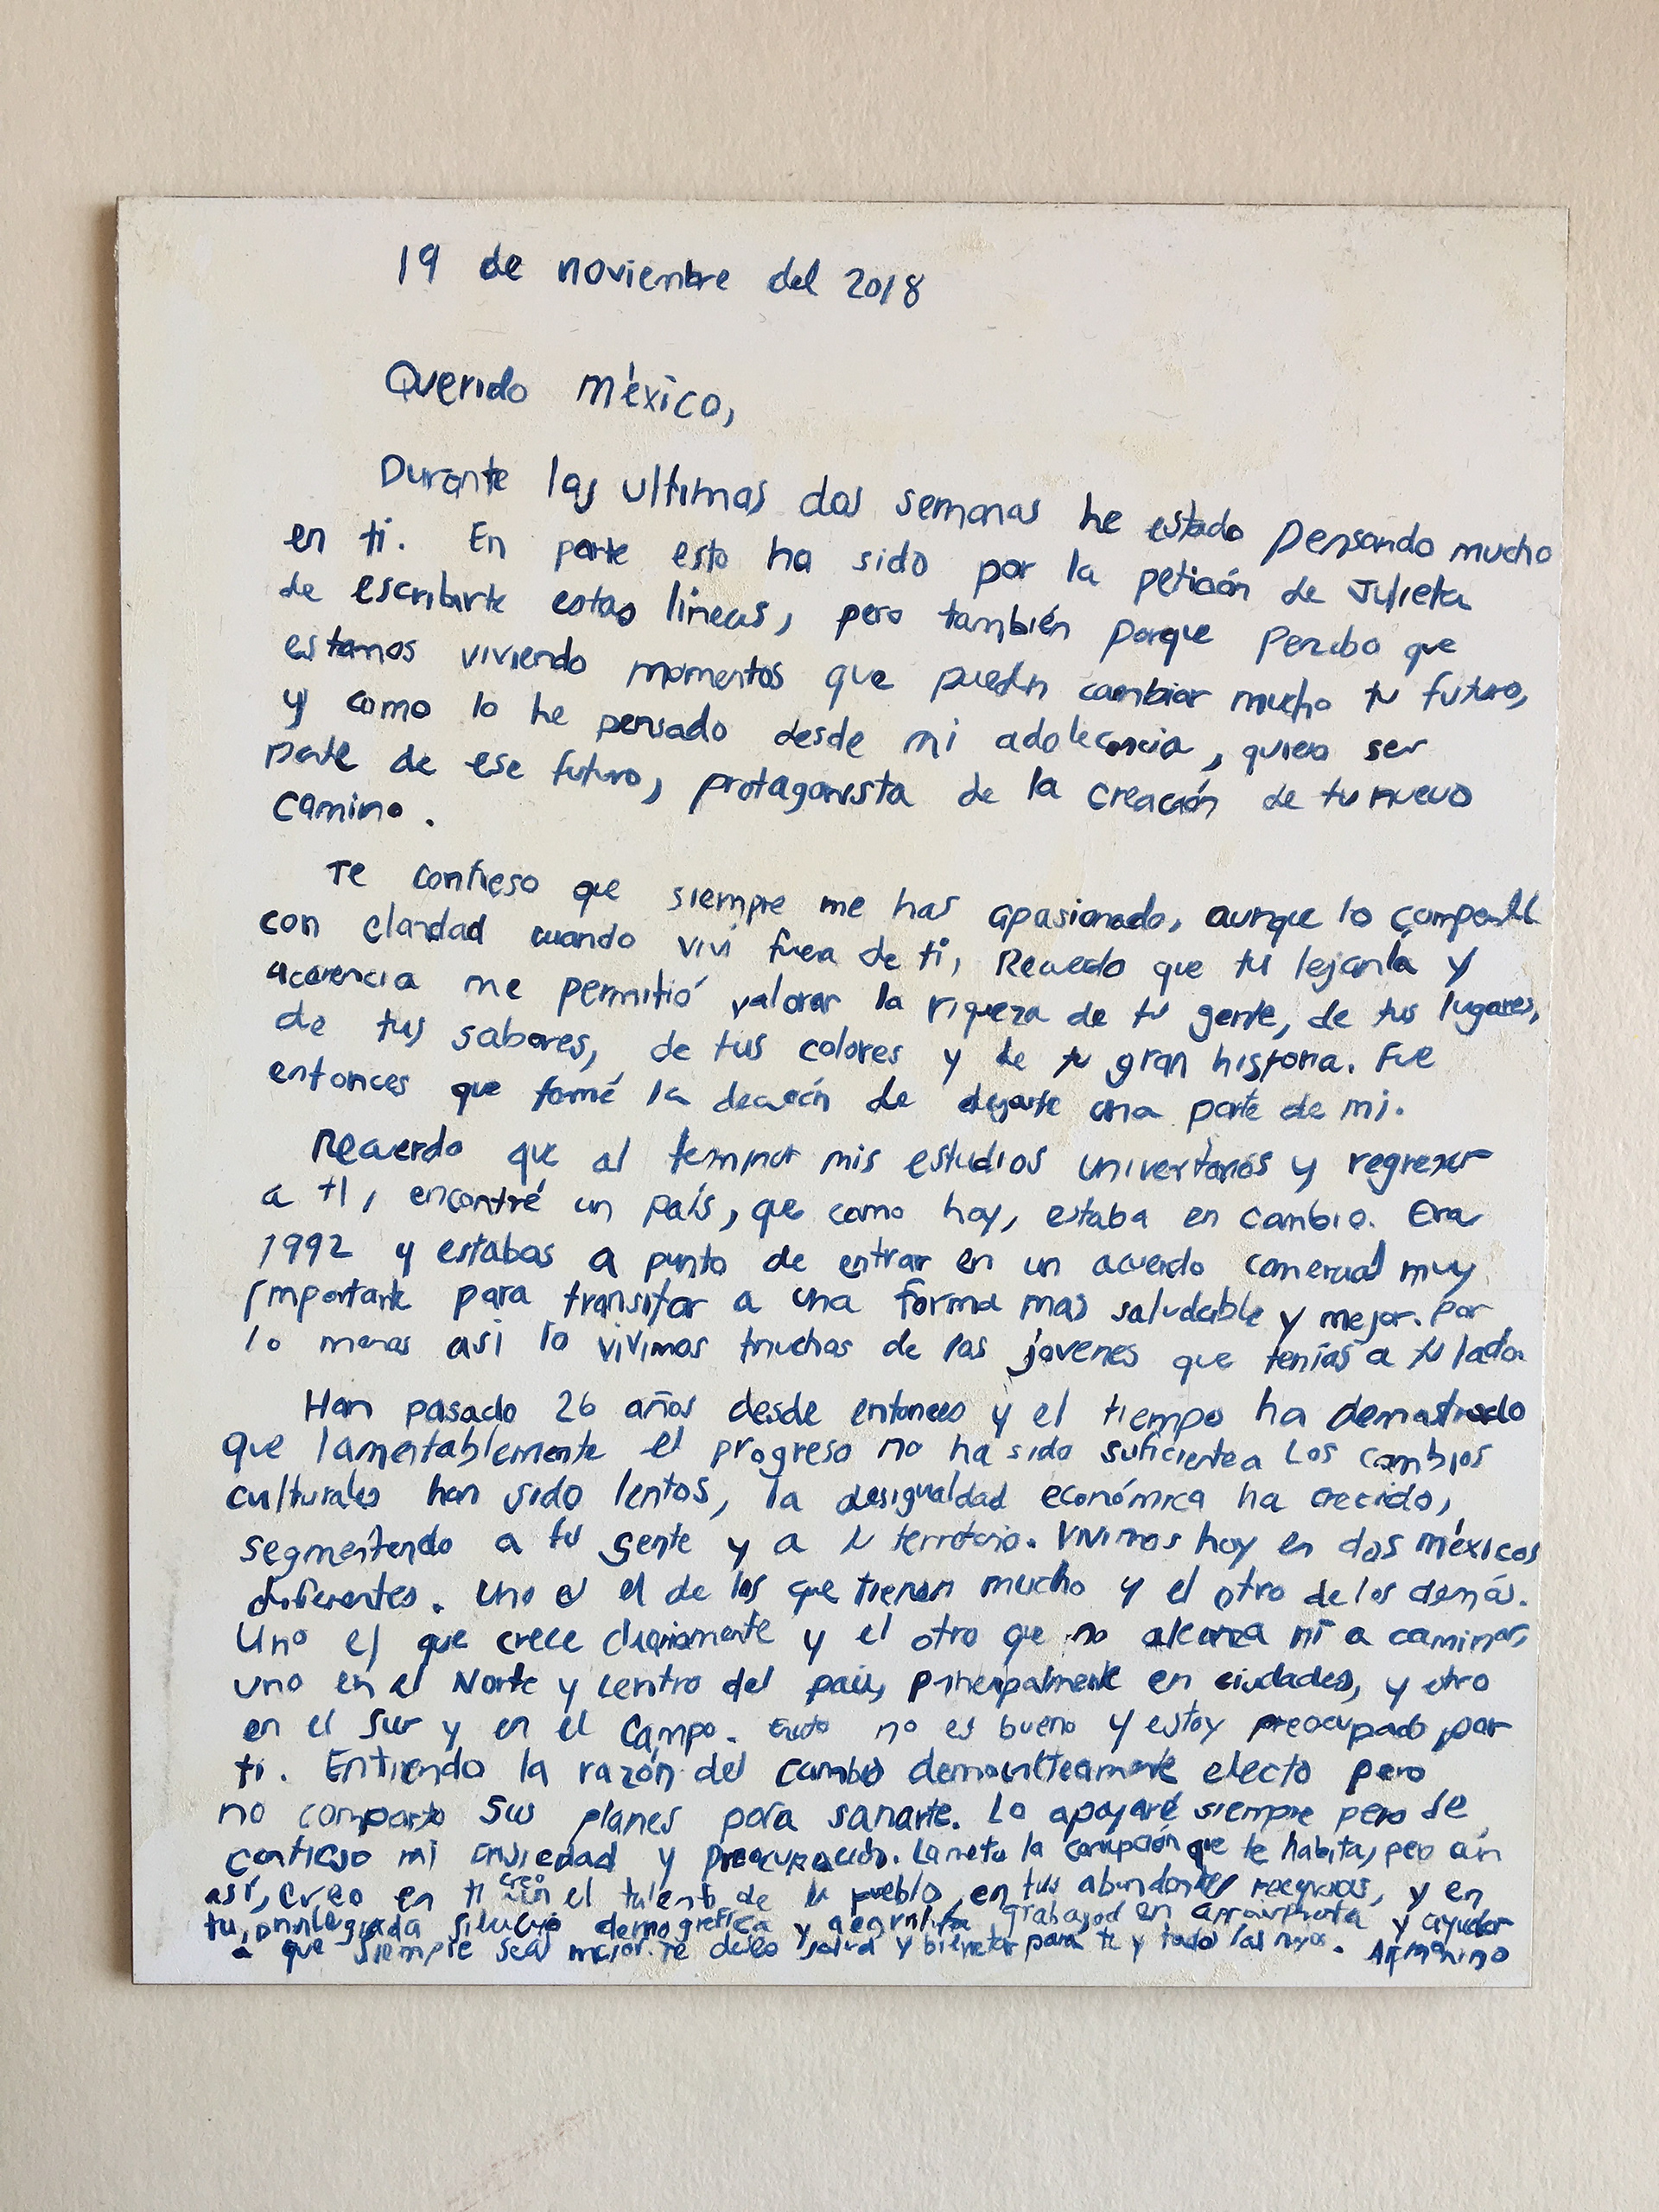 19 de noviembre del 2018
Querido México,
Durante las ultimas dos semanas he estado pensando mucho
en ti. En parte esto ha sido por la petición de Julieta
de escribirte estas lineas, pero también porque percibo que
estamos viviendo momentos que pueden cambiar mucho tu futuro,
y como lo he pensado desde mi adolecencia, quiero ser
parte de ese futuro, protagonista de la creación de tu nuevo
camino.
Te confieso que siempre me has apasionado, aunque lo
con claridad cuando viví fuera de ti, Recuerdo que tu lejanía y
me permitió valorar la riqueza de tu gente, de tus lugares,
de tus sabores, de tus colores y de tu gran historia. Fue
entonces que tomé la decisión de dejarte una parte de mi.
Recuerdo que al terminar mis estudios univertarios y regresar
a ti, encontré un país, que como hoy, estaba en cambio. Era
1992 y estabas a punto de entrar en un acuerdo comercial muy
importante para transitar a una forma mas saludable y mejor. Por
lo menos asi lo vivimos muchos de los jovenes que tenías a tu lado.
Han pasado 26 años desde entonces y el tiempo ha demostrado
que lamentablemente el progreso no ha sido suficiente Los cambios
culturales han sido lentos, la desigualdad económica ha crecido,
segmentando a tu gente y a tu territorio. Vivimos hoy en dos méxicos
diferentes. Uno es el de los que tienen mucho y el otro de los demás.
Uno el que crece diariamente y el otro que no alcanza ni a caminar,
uno en el Norte y centro del país, principalmente en ciudades, y otro
en el Sur y en el Campo. no es bueno y estoy preocupado por
ti. Entiendo la razón del cambio electo pero
no comparto sus planes para sanarte. Lo apoyaré siempre pero de
confieso mi ansiedad y preocupación. Lamento la corrupción que te habita, pero aún
así, creo en ti creo en el talento de tu pueblo, en tus abundantes recursos, y en
tu privilegiada situación demográfica y y ayudar
a que siempre seas mejor. Te deseo salud y bienestar para ti y todos los